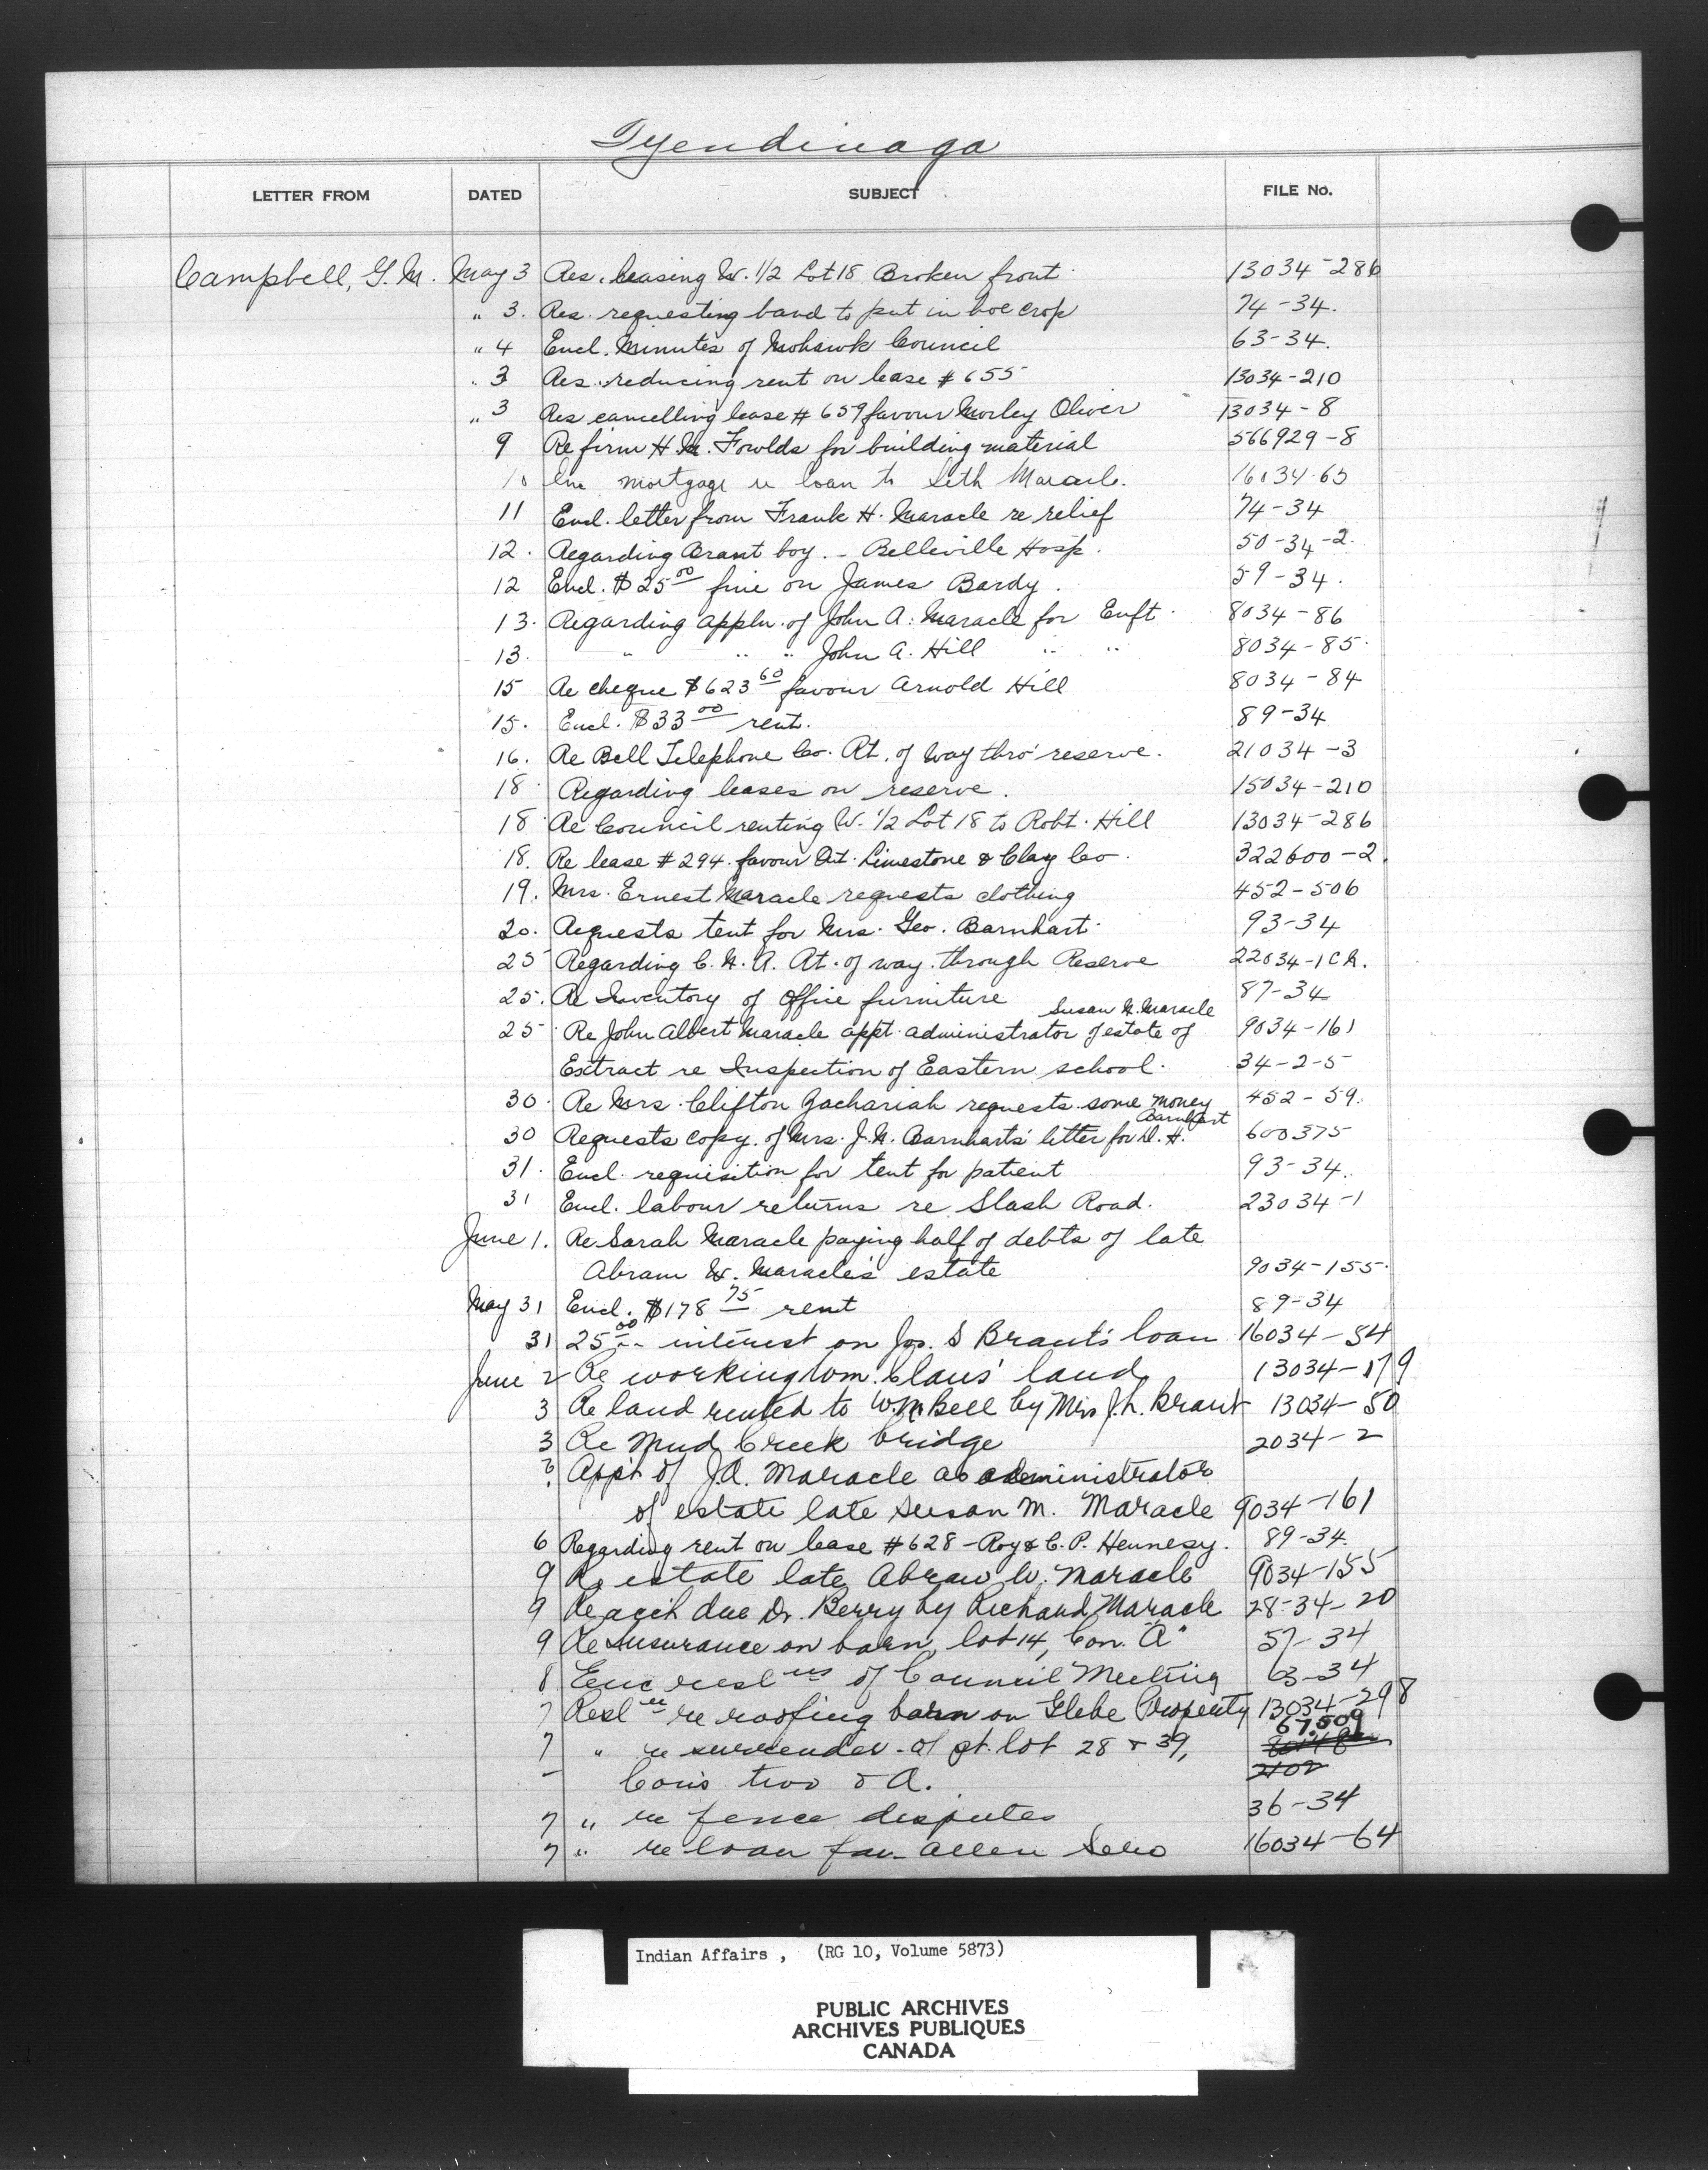 Tyendinaga
LETTER FROM DATED SUBJECT FILE No.
Campbell, G. M. May 3 Res. leasing W. 1/2 Lot 18 Broken front 13034-286
" 3. Res. requesting band to put in hoe crop 74-34.
" 4 Encl. Minutes of Mohawk Council 63-34.
" 3 Res. reducing rent on lease # 655 13034-210
" 3 Res cancelling lease # 659 favour Morley Oliver 13034-8
9 Re firm H. M. Fowlds for building material 566929-8
10 Enc mortgage re loan to Seth Maracle. 16034-65
11 Encl. letter from Frank H. Maracle re relief 74-34
12. Regarding Brant boy. - Belleville Hosp. 50-34-2.
12 Encl. $25 00 fine on James Bardy. 59-34.
13. Regarding appln. of John A. Maracle for Enft. 8034-86
13. " " " John A. Hill " " 8034-85.
15 Re cheque $623 60 favour Arnold Hill 8034-84
15. Encl. $33 00 rent. 89-34
16. Re Bell Telephone Co. Rt. of way thro' reserve. 21034-3
18 Regarding leases on reserve. 15034-210
18 Re Council renting W. 1/2 Lot 18 to Robt. Hill 13034-286
18. Re lease # 294 favour Limestone & Clay Co. 322600-2.
19. Mrs. Ernest Maracle requests clothing 452-506
20. Requests tent for Mrs. Geo. Barnhart. 93-34
25 Regarding C. N. R. Rt. of way through Reserve 22034-1 C.R.
25. Re Inventory of Office furniture 87-34
Susan M. Maracle
25 Re John Albert Maracle appt. administrator of estate of 9034-161
Extract re Inspection of Eastern school. 34-2-5
30. Re Mrs. Clifton Zachariah requests some money 452-59.
Barnhart
30 Requests copy of Mrs. J. N. Barnharts' letter for D. H. 600375
31. Encl. requisition for tent for patient 93-34.
31 Encl. labour returns re Slash Road. 23034-1
June 1. Re Sarah Maracle paying half of debts of late
Abram W. Maracle's estate 9034-155.
May 31 Encl. $178 75 rent 89-34
31 25 00 interest on Jos. S Brant's loan 16034-54
June 2 Re working Wm. Claus' land 13034-179
3 Re land rented to Wm Bell by Mrs J. L. Brant 13034-50
3 Re Mud Creek bridge 2034-2
? App't of J. A. Maracle as administrator
of estate late Susan M. Maracle 9034-161
6 Regarding rent on lease # 628 - Roy & C. P. Hennesy. 89-34.
9 Re estate late Abram W. Maracle 9034-155
9 Re acct due Dr. Berry by Richard Maracle 28-34-20
9 Re Insurance on barn, lot 14, Con. "A" 57-34
8 Enc resl ns of Council Meeting 63-34
7 Resl n re roofing barn on Glebe Property 13034-298
67,509
7 " re surrender of pt. lot 28 & 39,
Con's two & A.
7 " re fence disputes 36-34
7 " re loan fav. Allen Sero 16034-64
Indian Affairs , (RG 10, Volume 5873)
PUBLIC ARCHIVES
ARCHIVES PUBLIQUES
CANADA